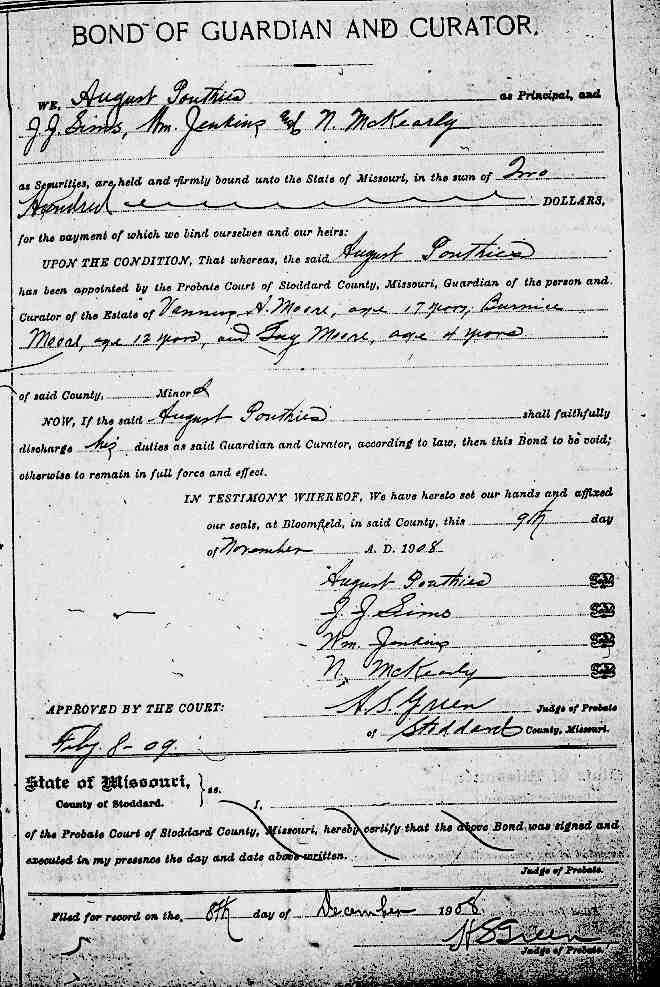 BOND OF GUARDIAN AND CURATOR.
WE, August Pouthies as Principal, and
J. J. Sims, Wm. Jenkins and N. McKearly
as Securities, are held and firmly bound unto the State of Missouri, in the sum of Two
Hundred DOLLARS,
for the payment of which we bind ourselves and our heirs:
UPON THE CONDITION, That whereas, the said August Pouthies
has been appointed by the Probate Court of Stoddard County, Missouri, Guardian of the person and
Curator of the Estate of A. Moore, age 17 years, Burnice
Moore, age 12 years, and Fay Moore, age 4 years
of said County, Minors
NOW, If the said August Pouthies shall faithfully
discharge his duties as said Guardian and Curator, according to law, then this Bond to be void;
otherwise to remain in full force and effect.
IN TESTIMONY WHEREOF, We have hereto set our hands and affixed
our seals, at Bloomfield, in said County, this 9th day
of November A. D. 1908
August Pouthies
J. J. Sims
Wm. Jenkins
N. McKearly
APPROVED BY THE COURT: H. S. Green Judge of Probate
Feby 8-09. of Stoddard County, Missouri.
State of Missouri, } ss.
County of Stoddard. I,
of the Probate Court of Stoddard County, Missouri, hereby certify that the above Bond was signed and
executed in my presence the day and date above written.
Judge of Probate.
Filed for record on the 8th day of December 1908
H S Green
Judge of Probate.